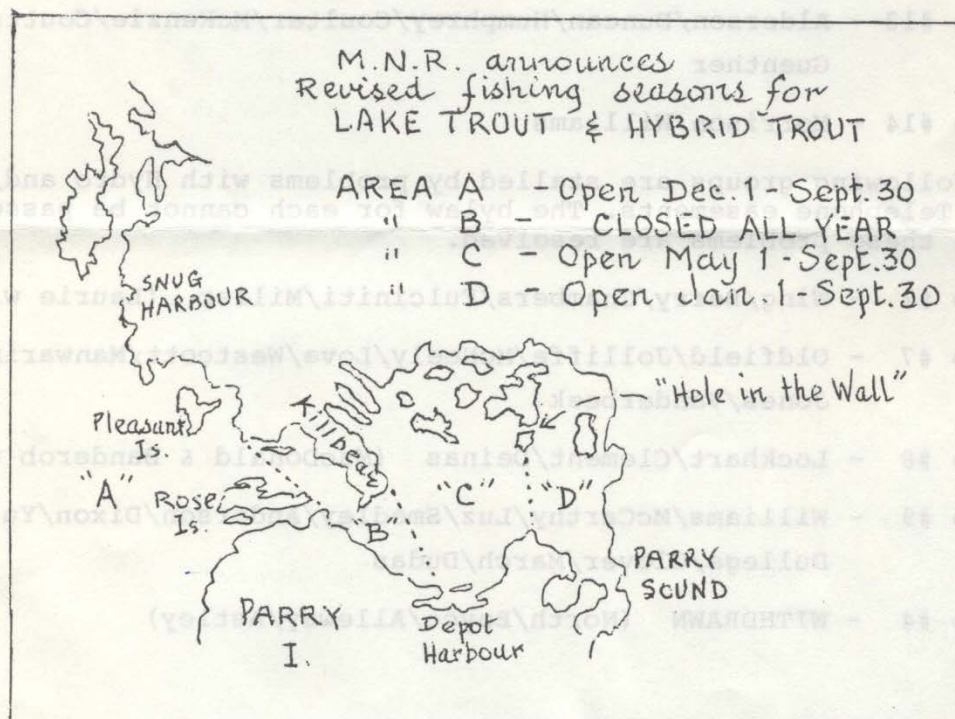 M.N.R. announces
Revised fishing seasons for
LAKE TROUT & HYBRID TROUT
AREA A - Open Dec.1-Sept.30
" B - CLOSED ALL YEAR
" C - Open May 1-Sept.30
" D - Open Jan.1-Sept.30
SNUG
HARBOUR
"Hole in the Wall"
Pleasant
Is.
KillBear
"A"
Rose
Is.
"B"
"C"
"D"
PARRY
SOUND
PARRY
I.
Depot
Harbour